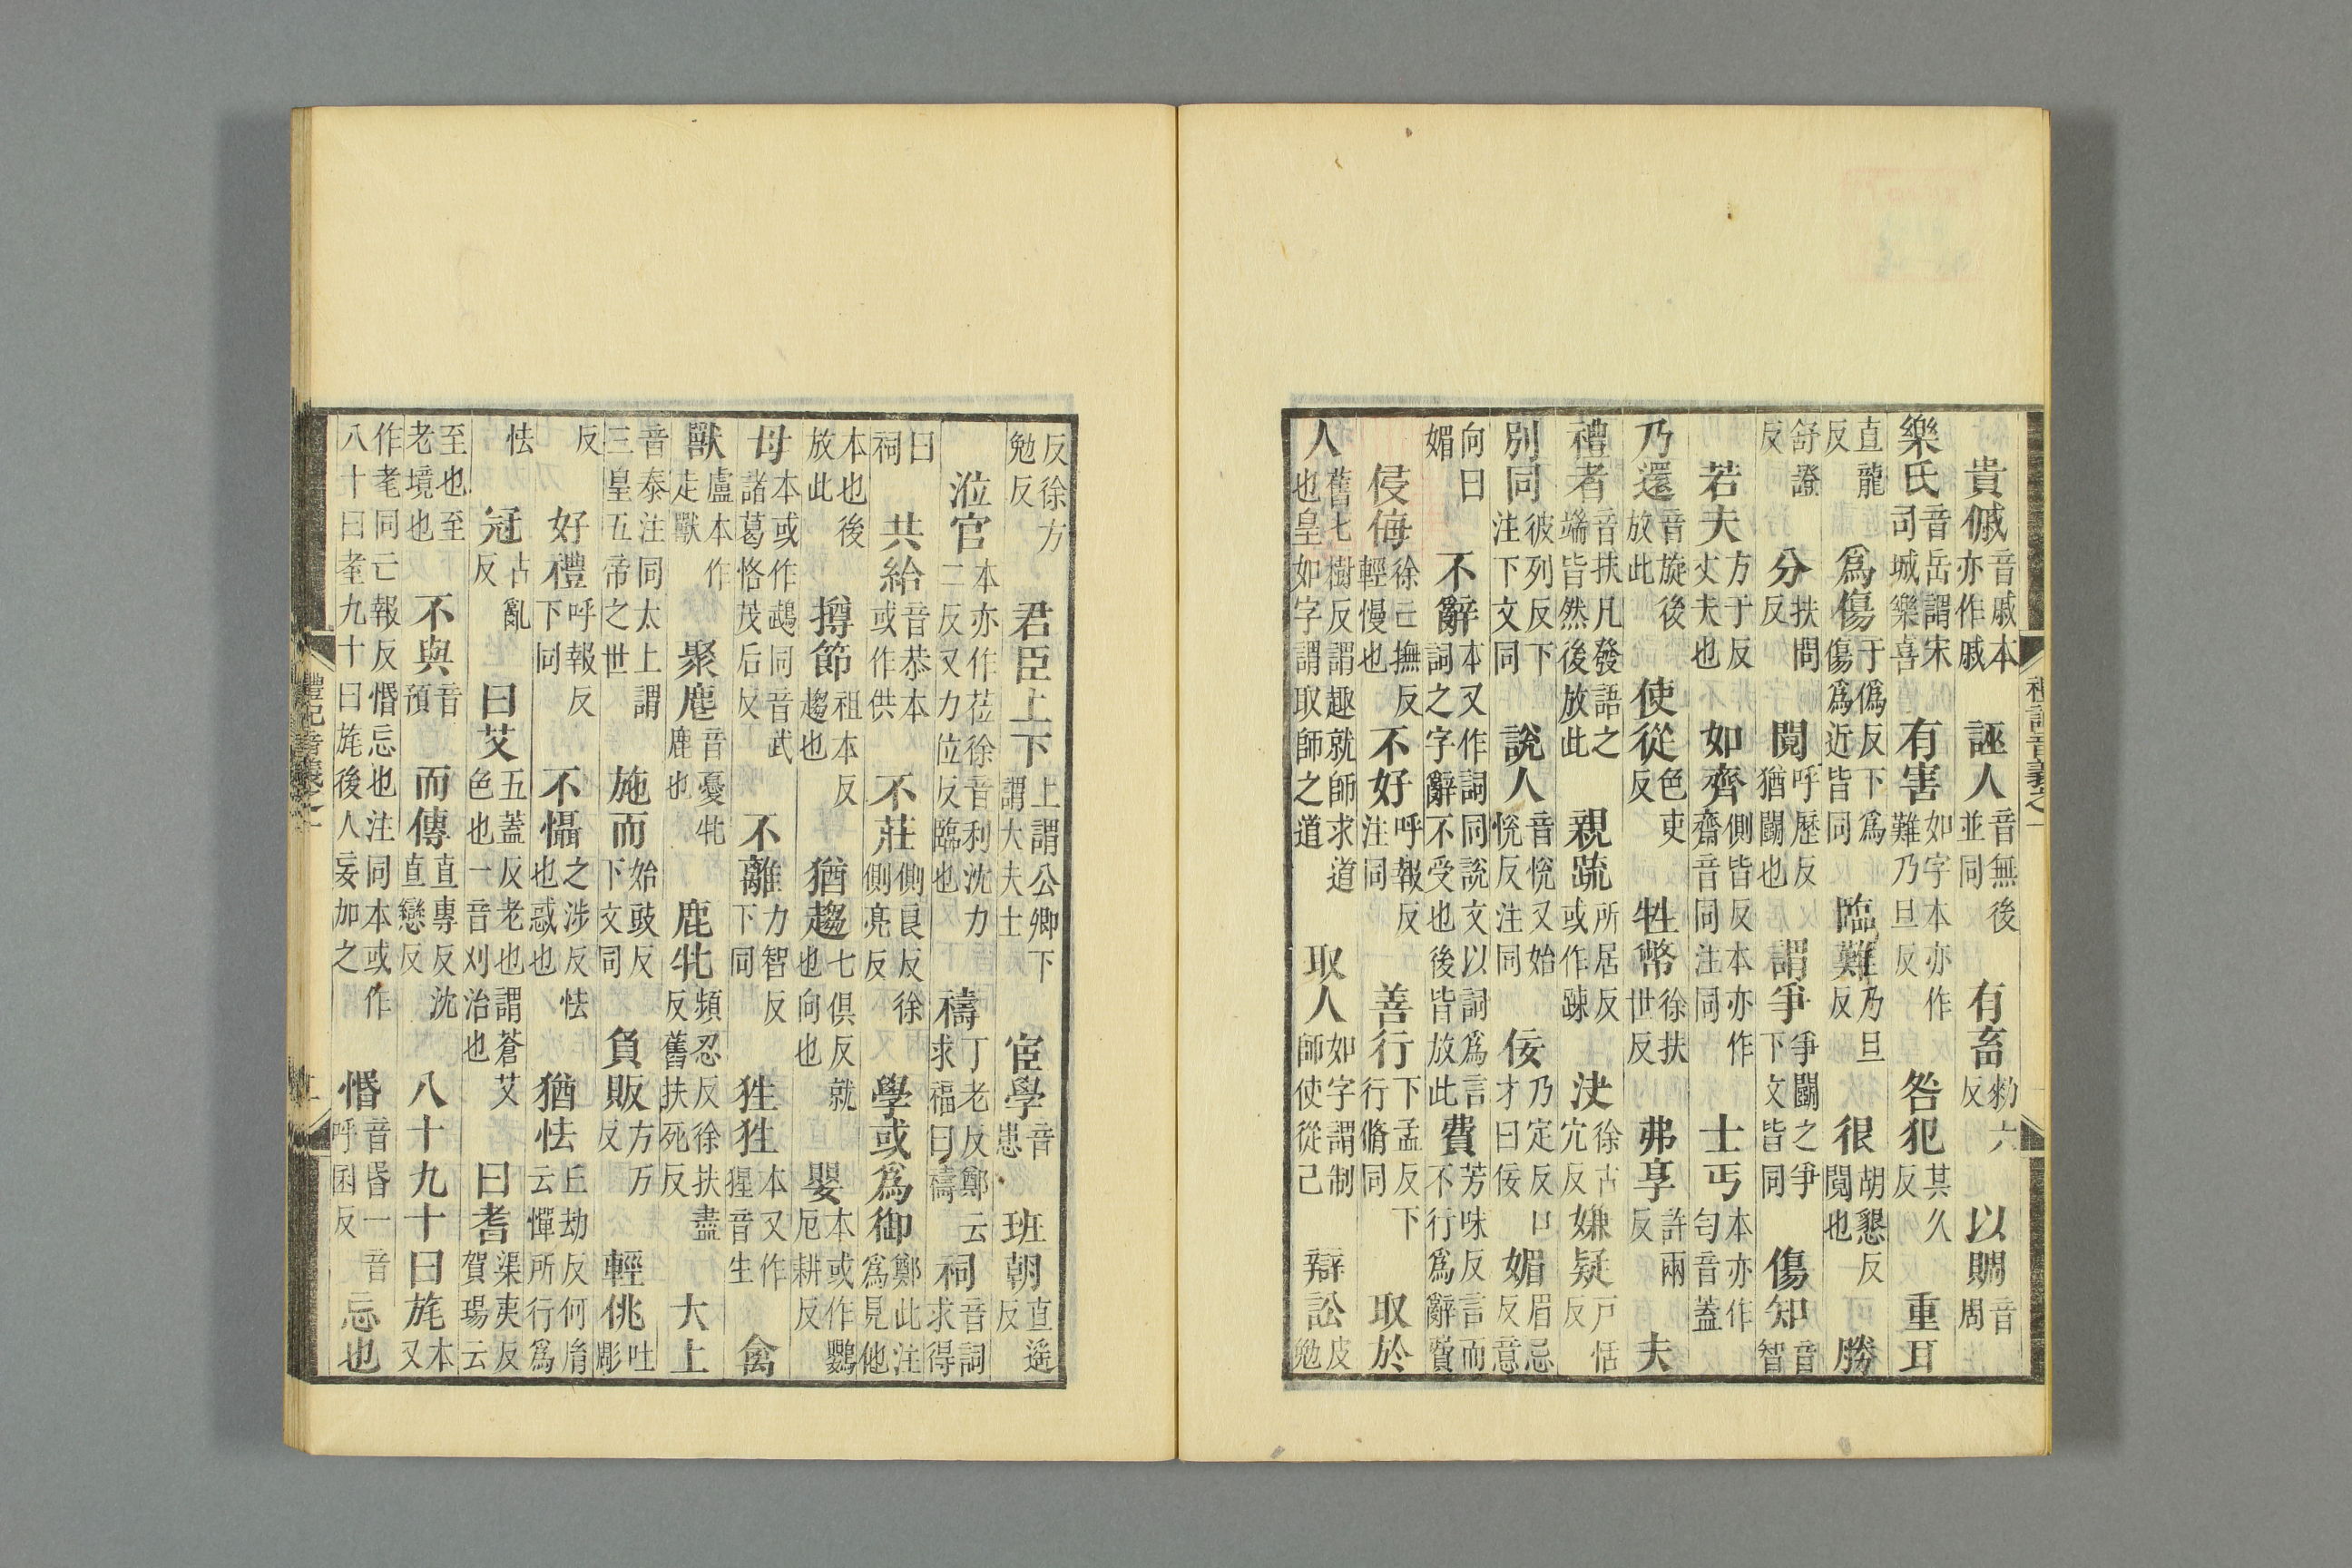 貴傶音戚本亦作戚　誣人音無後並同　有畜勑六反　以賙音周
樂氏音岳謂宋司城樂喜　有害如字本亦作難乃旦反　咎犯其久反　重耳
直龍反　為傷于偽反下為傷為近皆同　臨難乃旦反　很胡懇反鬩也　勝
舒證反　分扶問反　鬩呼歷反猶鬬也　謂爭爭鬬之爭下文皆同　傷知音智
若夫方于反丈夫也　如齊側皆反本亦作齋音同注同　士丐本亦作匄音蓋
乃還音旋後放此　使從色吏反　牲幣徐扶世反　弗享許兩反　夫
禮者音扶凡發語之端皆然後放此　親疏所居反或作踈　決徐古穴反　嫌疑戸恬反
別同彼列反下注下文同　說人音悅又始悅反注同　佞乃定反口才曰佞　媚眉忌反意
向曰媚　不辭本又作詞同說文以詞為言詞之字辭不受也後皆放此　費芳味反言而不行為辭費
侵侮徐亡撫反輕慢也　不好呼報反注同　善行下孟反下行脩同　取於
人舊七樹反謂趣就師求道也皇如字謂取師之道　取人如字謂制師使從己　辯訟皮勉
反徐方勉反　君臣上下上謂公卿下謂大夫士　宦學音患　班朝直遙反
涖官本亦作莅徐音利沈力二反又力位反臨也　禱丁老反鄭云求福曰禱　祠音詞求得
曰祠　共給音恭本或作供　不莊側良反徐側亮反　學或為御鄭此注為見他
本也後放此　撙節祖本反趨也　猶趨七俱反就也向也　嬰本或作鸚厄耕反
母本或作䳇同音武諸葛恪茂后反　不離力智反下同　狌狌本又作猩音生　禽
獸盧本作走獸　聚麀音憂牝鹿也　鹿牝頻忍反徐扶盡反舊扶死反　大上
音泰注同太上謂三皇五帝之世　施而始豉反下文同　負販方万反　輕佻吐彫
反　好禮呼報反下同　不懾之涉反怯也惑也　猶怯丘劫反何胤云憚所行為
怯　冠古亂反　曰艾五蓋反老也謂蒼艾色也一音刈治也　曰耆渠夷反賀瑒云
至也至老境也　不與音預　而傳直專反沈直戀反　八十九十曰旄本又
作耄同亡報反惛忘也注同本或作八十曰耋九十曰旄後人妄加之　惛音昏一音呼困反　忘也
禮記音義之一